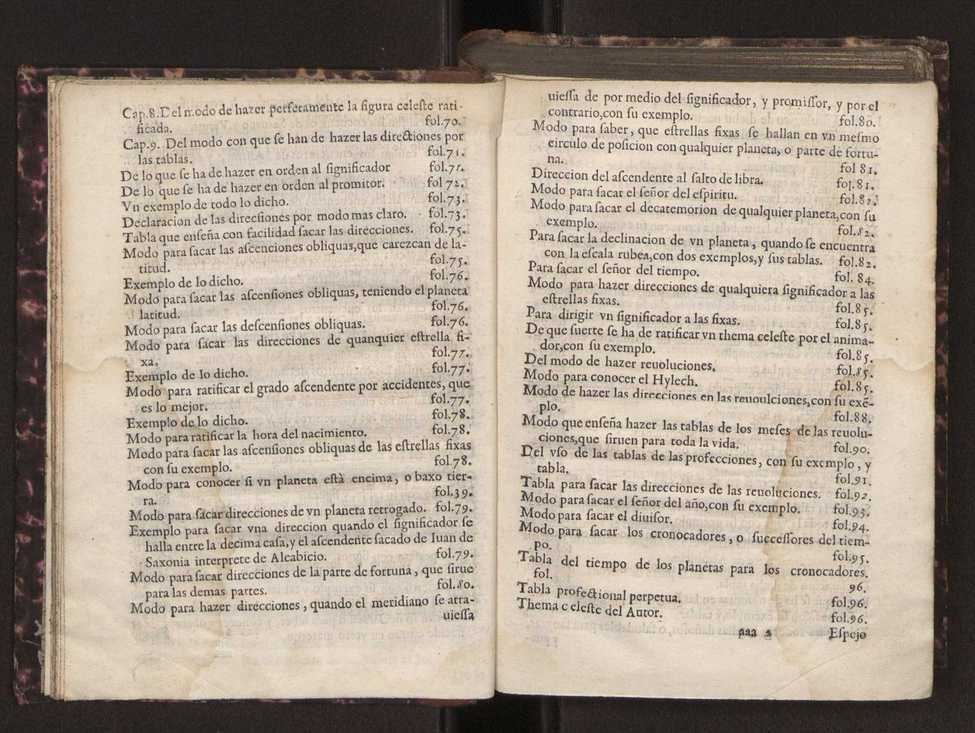 Cap.8.Del modo de hazer perfetamente la figura celeſte rati-
ficada. fol.70.
Cap.9. Del modo con que ſe han de hazer las directiones por
las tablas. fol.71.
De lo que ſe ha de hazer en orden al ſignificador fol.71.
De lo que ſe ha de hazer en orden al promitor. fol 72.
Vn exemplo de todo lo dicho. fol.73.
Declaracion de las direcſiones por modo mas claro. fol.73.
Tabla que enſeña con facilidad ſacar las direcciones. fol.75.
Modo para ſacar las aſcenciones obliquas,que carezcan de la-
titud. fol.75.
Exemplo de lo dicho. fol.76.
Modo para ſacar las aſcenſiones obliquas, teniendo el planeta
latitud. fol.76.
Modo para ſacar las deſcenſiones obliquas. fol.76.
Modo para ſacar las direcciones de quanquier eſtrella fi-
xa. fol.77.
Exemplo de lo dicho. fol.77.
Modo para ratificar el grado aſcendente por accidentes, que
es lo mejor. fol.77.
Exemplo de lo dicho. fol.78.
Modo para ratificar la hora del nacimiento. fol.78.
Modo para ſacar las aſcenſiones obliquas de las eſtrellas fixas
con ſu exemplo. fol.78.
Modo para conocer ſi vn planeta eſtà encima, o baxo tier-
ra. fol.39.
Modo para ſacar direcciones de vn planeta retrogado. fol.79.
Exemplo para ſacar vna direccion quando el ſignificador ſe
halla entre la decima caſa,y el aſcendente ſacado de Iuan de
Saxonia interprete de Alcabicio. fol.79.
Modo para ſacar direcciones de la parte de fortuna, que ſirue
para las demas partes. fol.80.
Modo para hazer direcciones, quando el meridiano ſe atra-
uieſſa
uieſſa de por medio del ſignificador, y promiſſor, y por el
contrario,con ſu exemplo. fol.80.
Modo para ſaber, que eſtrellas fixas ſe hallan en vn meſmo
circulo de poſicion con qualquier planeta, o parte de fortu-
na. fol 81.
Direccion del aſcendente al ſalto de libra. fol.81.
Modo para ſacar el ſeñor del eſpiritu. fol.82.
Modo para ſacar el decatemorion de qualquier planeta,con ſu
exemplo. fol.82.
Para ſacar la declinacion de vn planeta, quando ſe encuentra
con la eſcala rubea,con dos exemplos,y ſus tablas. fol.82.
Para ſacar el ſeñor del tiempo. fol. 84.
Modo para hazer direcciones de qualquiera ſignificador a las
eſtrellas fixas. fol.85.
Para dirigir vn ſignificador a las fixas. fol.85.
De que ſuerte ſe ha de ratificar vn thema celeſte por el anima-
dor,con ſu exemplo. fol.85.
Del modo de hazer reuoluciones. fol.85.
Modo para conocer el Hylech. fol.85.
Modo de hazer las direcciones en las reuoulciones,con ſu exẽ-
plo. fol.88.
Modo que enſeña hazer las tablas de los meſes de las reuolu-
ciones,que ſiruen para toda la vida. fol.90.
Del vſo de las tablas de las profecciones, con ſu exemplo, y
tabla. fol.91.
Tabla para ſacar las direcciones de las reuoluciones. fol.92.
Modo para ſacar el ſeñor del año,con ſu exemplo. fol.93.
Modo para ſacar el diuiſor. fol.94.
Modo para ſacar los cronocadores, o ſucceſſores del tiem-
po. fol.95.
Tabla del tiempo de los planetas para los cronocadores.
fol. 96.
Tabla profectional perpetua. fol.96.
Thema celeſte del Autor. fol.96.
aaa 2 Eſpejo